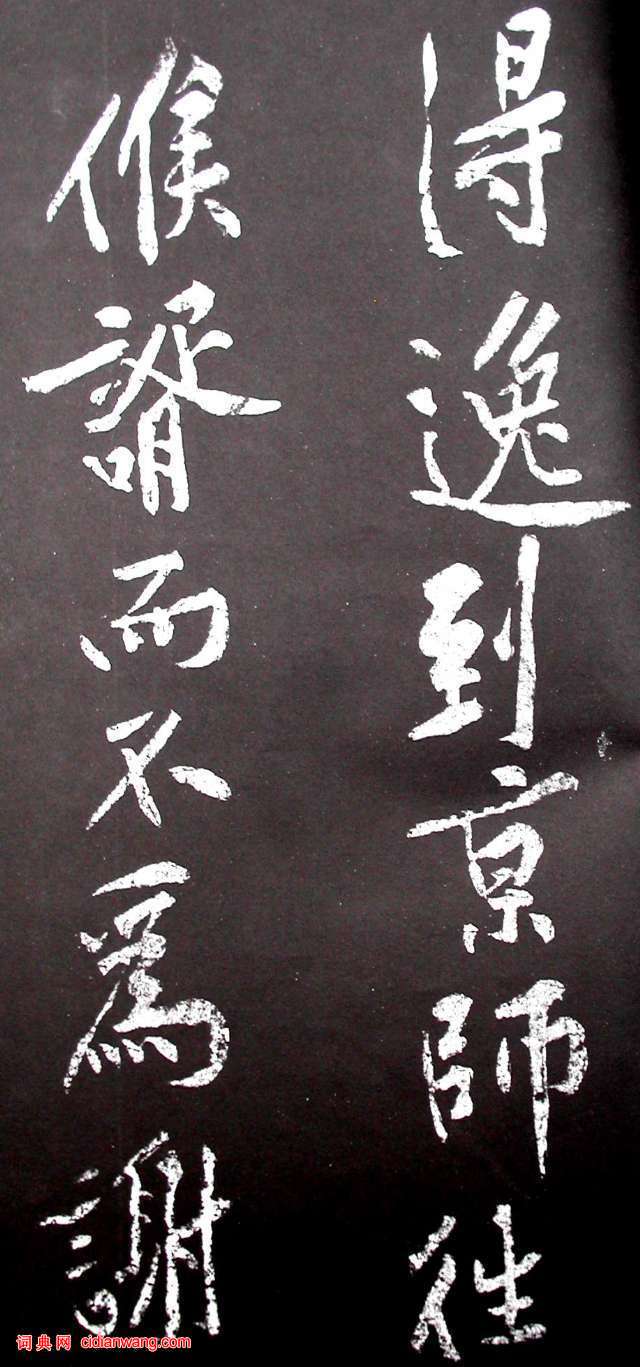 得逸到京師往
候諝而不爲謝
词典网 cidianwang.com